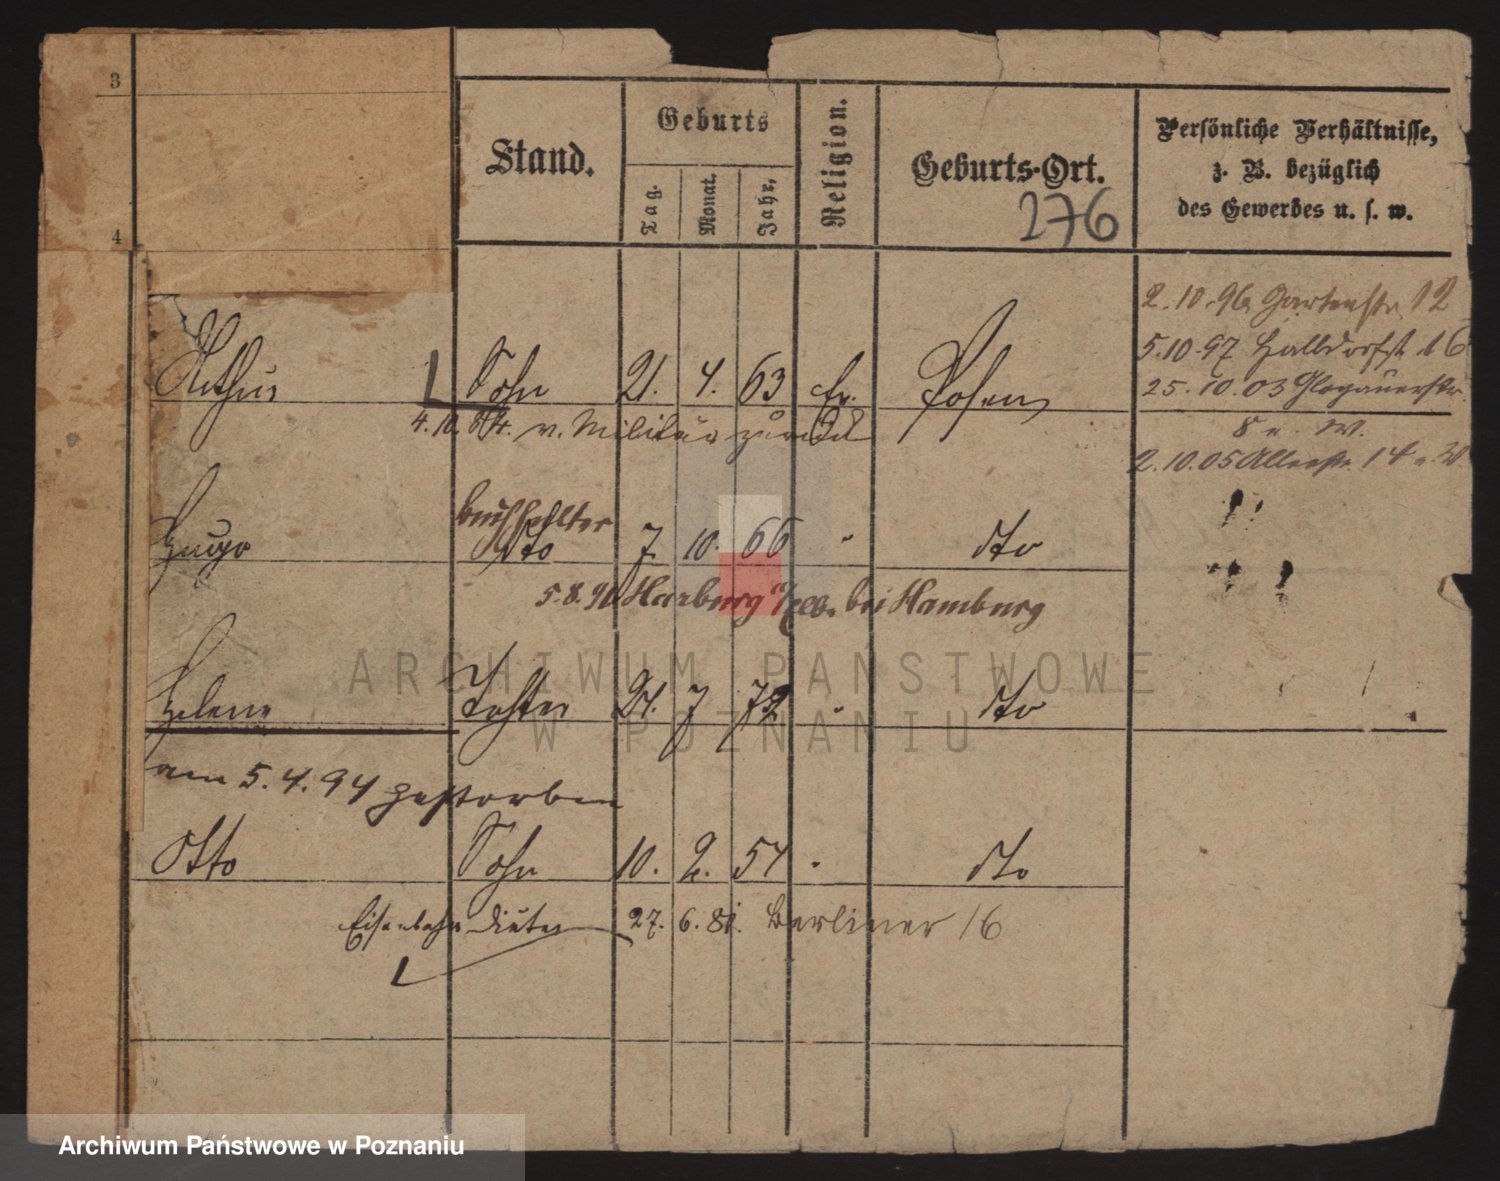 3
4
Stand.
Geburts
Tag.
Monat.
Jahr,
Religion.
Geburts-Ort.
276
Persönliche Verhältnisse,
z. B. bezüglich
des Gewerbes u. s. w.
2.10.96 Gartenstr. 12
5.10.97 Halbdorfstr. 16
25.10.03 Glogauerstr.
Arthur Sohn 21. 4. 63 ev. Posen
4.10.84. v. Militär zurück
2.10.05 14
Hugo Buchhalter dto 7. 10. 66 " dto
5.8.91 Harburg a/Elb. bei Hamburg
Helene Tochter 21. 7 72 " dto
am 5.4.94 gestorben
Otto Sohn 10. 2. 54 " dto
Eisenbahn Diätar 27. 6. 81. Berliner 16
ARCHIWUM PAŃSTWOWE
W POZNANIU
Archiwum Państwowe w Poznaniu